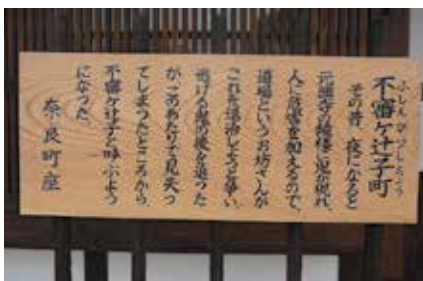 ふしんがづしちょう
不審ヶ辻子町
その昔、夜になると
元興寺の鐘楼に鬼が現れ、
人に危害を加えるので、
道場というお坊さんが
これを退治しようと争い、
逃げる鬼の後を追った
が、このあたりで見失っ
てしまったところから
不審ヶ辻子と呼ぶよう
になった。
奈良町座